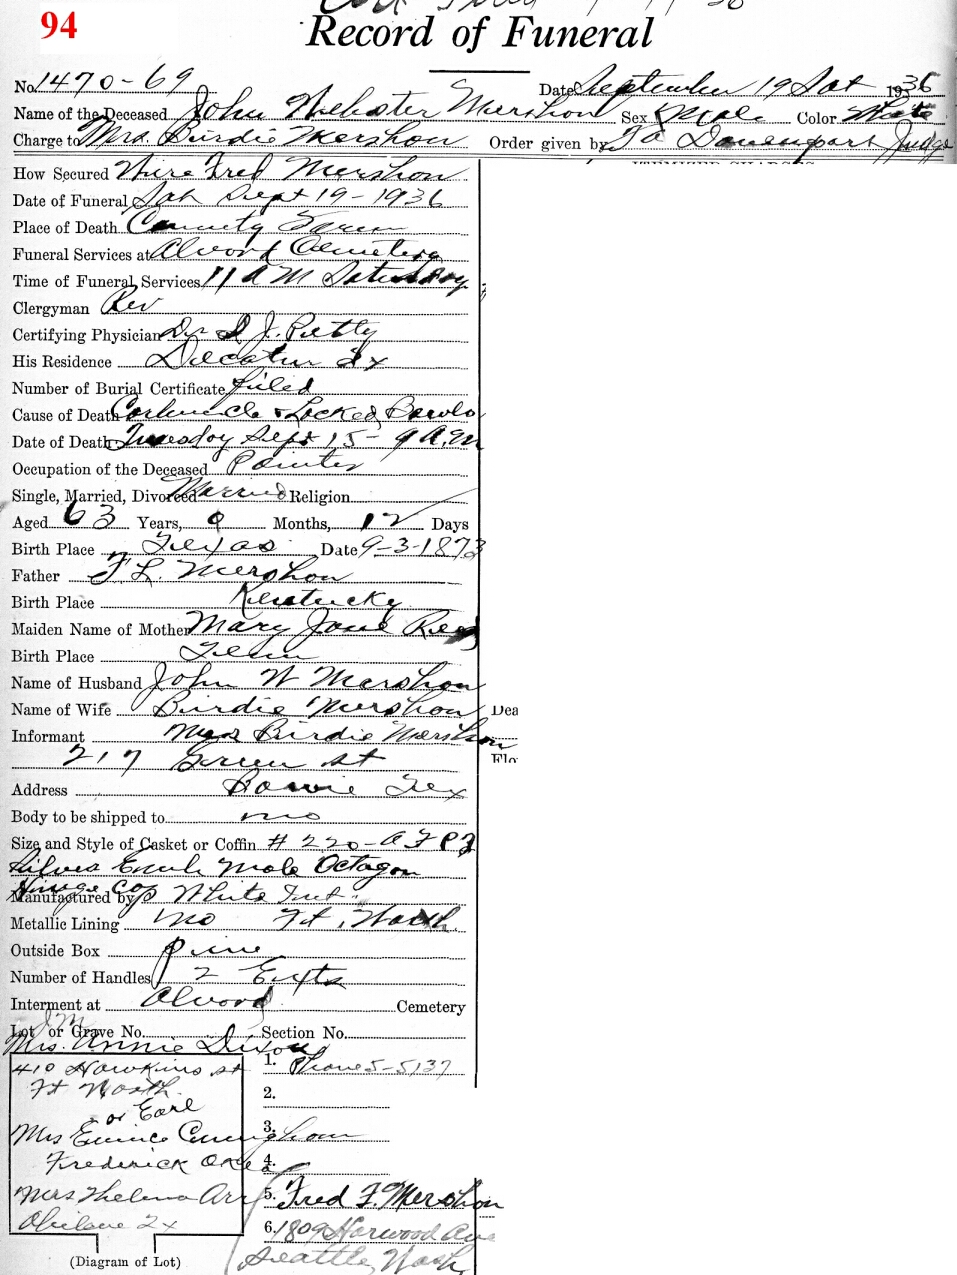 94
Record of Funeral
No. 1470-69 Date September 19 Sat 1936
Name of the Deceased John Webster Mershon Sex Male Color White
Charge to Mrs. Birdie Mershon Order given by Davenport Judge
How Secured Wire Fred Mershon
Date of Funeral Sat Sept 19-1936
Place of Death County Farm
Funeral Services at Alvord Cemetery
Time of Funeral Services 11 AM Saturday
Clergyman Rev
Certifying Physician Dr J. Petty
His Residence Decatur Tx
Number of Burial Certificate filed
Cause of Death Carbuncle & Locked Bowls
Date of Death Tuesday Sept 15- 9 A.M
Occupation of the Deceased Painter
Single, Married, Divorced Married Religion
Aged 63 Years, 0 Months, 12 Days
Birth Place Texas Date 9-3-1873
Father F. L. Mershon
Birth Place Kentucky
Maiden Name of Mother Mary Jane
Birth Place Tenn
Name of Husband John W Mershon
Name of Wife Birdie Mershon Dea
Informant Mrs Birdie Mershon
217 Green st Flo
Address Bowie Tex
Body to be shipped to no
Size and Style of Casket or Coffin # 220-
Silver Mole Octagon
Hinge Cap White Int.
Manufactured by
Metallic Lining no Ft. Worth
Outside Box pine
Number of Handles 2 Exts
Interment at Alvord Cemetery
J M
Lot or Grave No. Section No.
Mrs. Annie Dixon
410 Hawkins st 1. Phone 5-5137
Ft Worth 2.
or Earl
Mrs Eunice Cunningham 3.
Frederick Okla 4.
Mrs Thelma Arr 5. Fred F. Mershon
Abilene Tx 6. 1809 Harwood Ave
Seattle, Wash.
(Diagram of Lot)